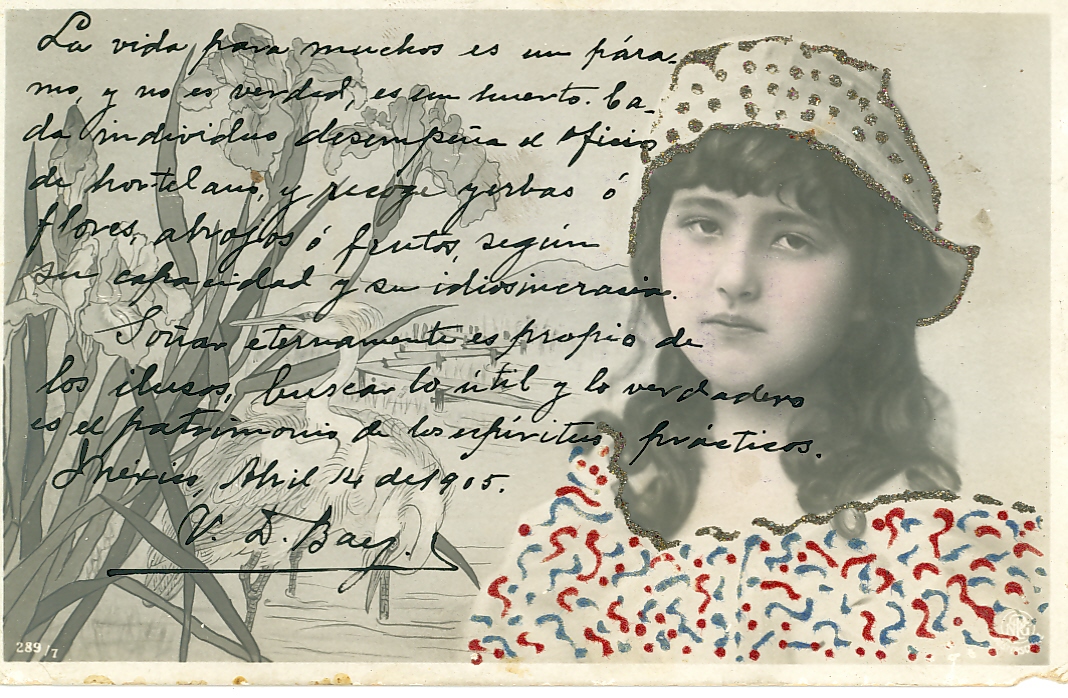 La vida para muchos es un pára-
mo, y no es verdad, es un huerto. Ca-
da individuo desempeña el oficio
de hortelano, y recoge yerbas ó
flores, abrojos ó frutos, según
su capacidad y su idiosincrasia.
Soñar eternamente es propio de
los ilusos, buscar lo útil y lo verdadero
es el patrimonio de los espíritus prácticos.
México, Abril 14 de 1905.
V. D. Baez.
289/7